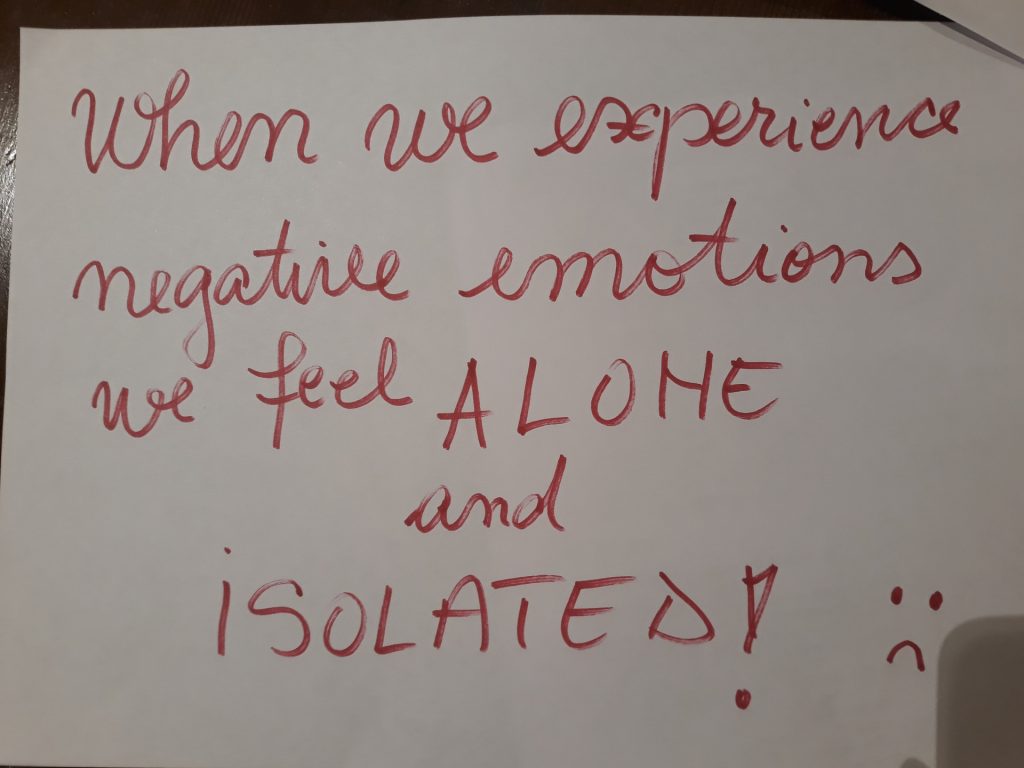 When we experience
negative emotions
we feel ALONE
and
iSOLATED!